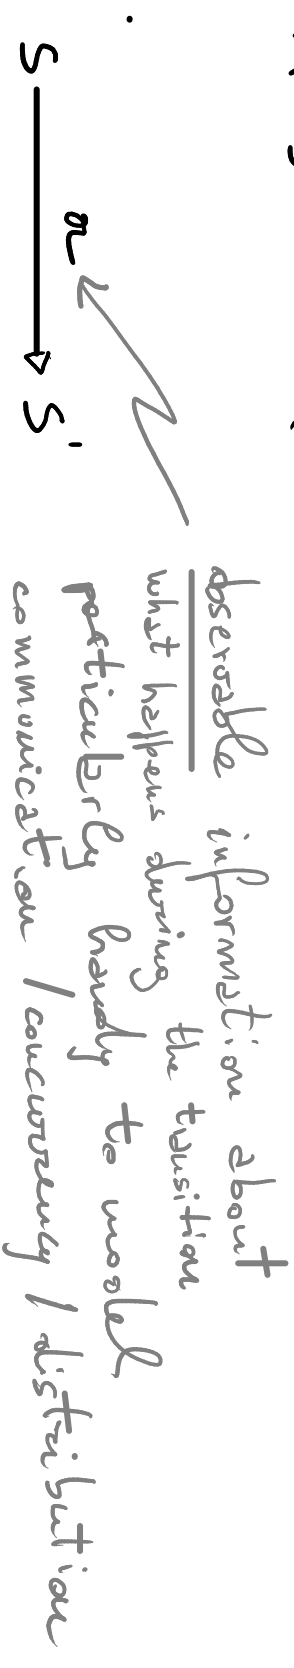 S a S'
observable information about
what happens during the transition
particularly handy to model
communication / concurrency / distribution